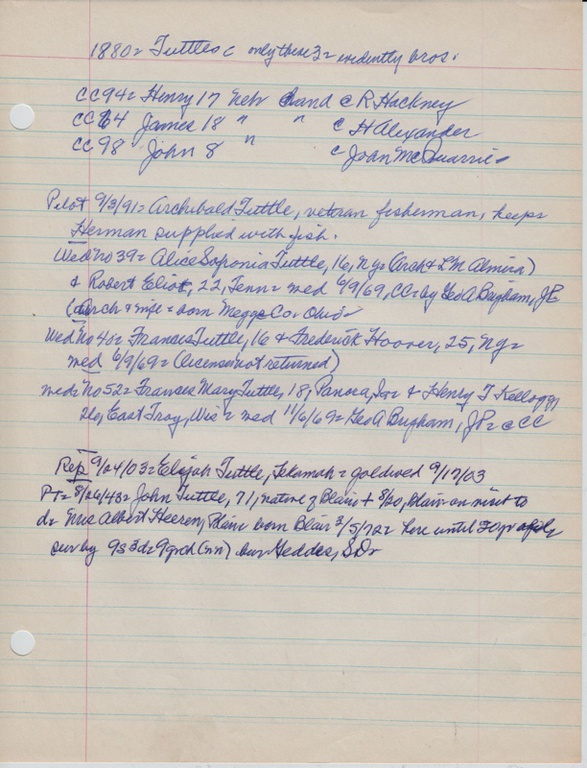 1880= Tuttles c only these 3= evidently bros.
CC 94= Henry 17 Neb hand c R Hackney
CC 64 James 18 " " c H Alexander
CC 98 John 8 " c Joan McQuarrie
Pilot 9/3/91= Archibald Tuttle, veteran fisherman, keeps
Herman supplied with fish.
Wed no 39= Alice Sofronia Tuttle, 16, Ny= (Arch & L M Almira)
& Robert Eliot, 22, Tenn= med 6/9/69, CC= by Geo A Brigham, JP
(Arch & wife= born Meggs Co. Ohio
Wed No 40= Frances Tuttle, 16 & Frederick Hoover, 25, Ny=
med 6/9/69= (license not returned)
med= No 52= Frances Mary Tuttle, 18, Panora, Ia= & Henry T Kellogg,
26, East Troy, Wis= med 11/6/69= Geo A Brigham, JP= c CC
Rep 9/24/03= Elijah Tuttle, Tekamah= goldwed 9/17/03
PT= 8/26/43= John Tuttle, 71, native of Blair + 8/20, Blair on visit to
d= Mrs Albert Heeren, Blair born Blair 3/5/72= here until 30 yr
sur by 9s 3d= 9 grch bur Geddes, SD=